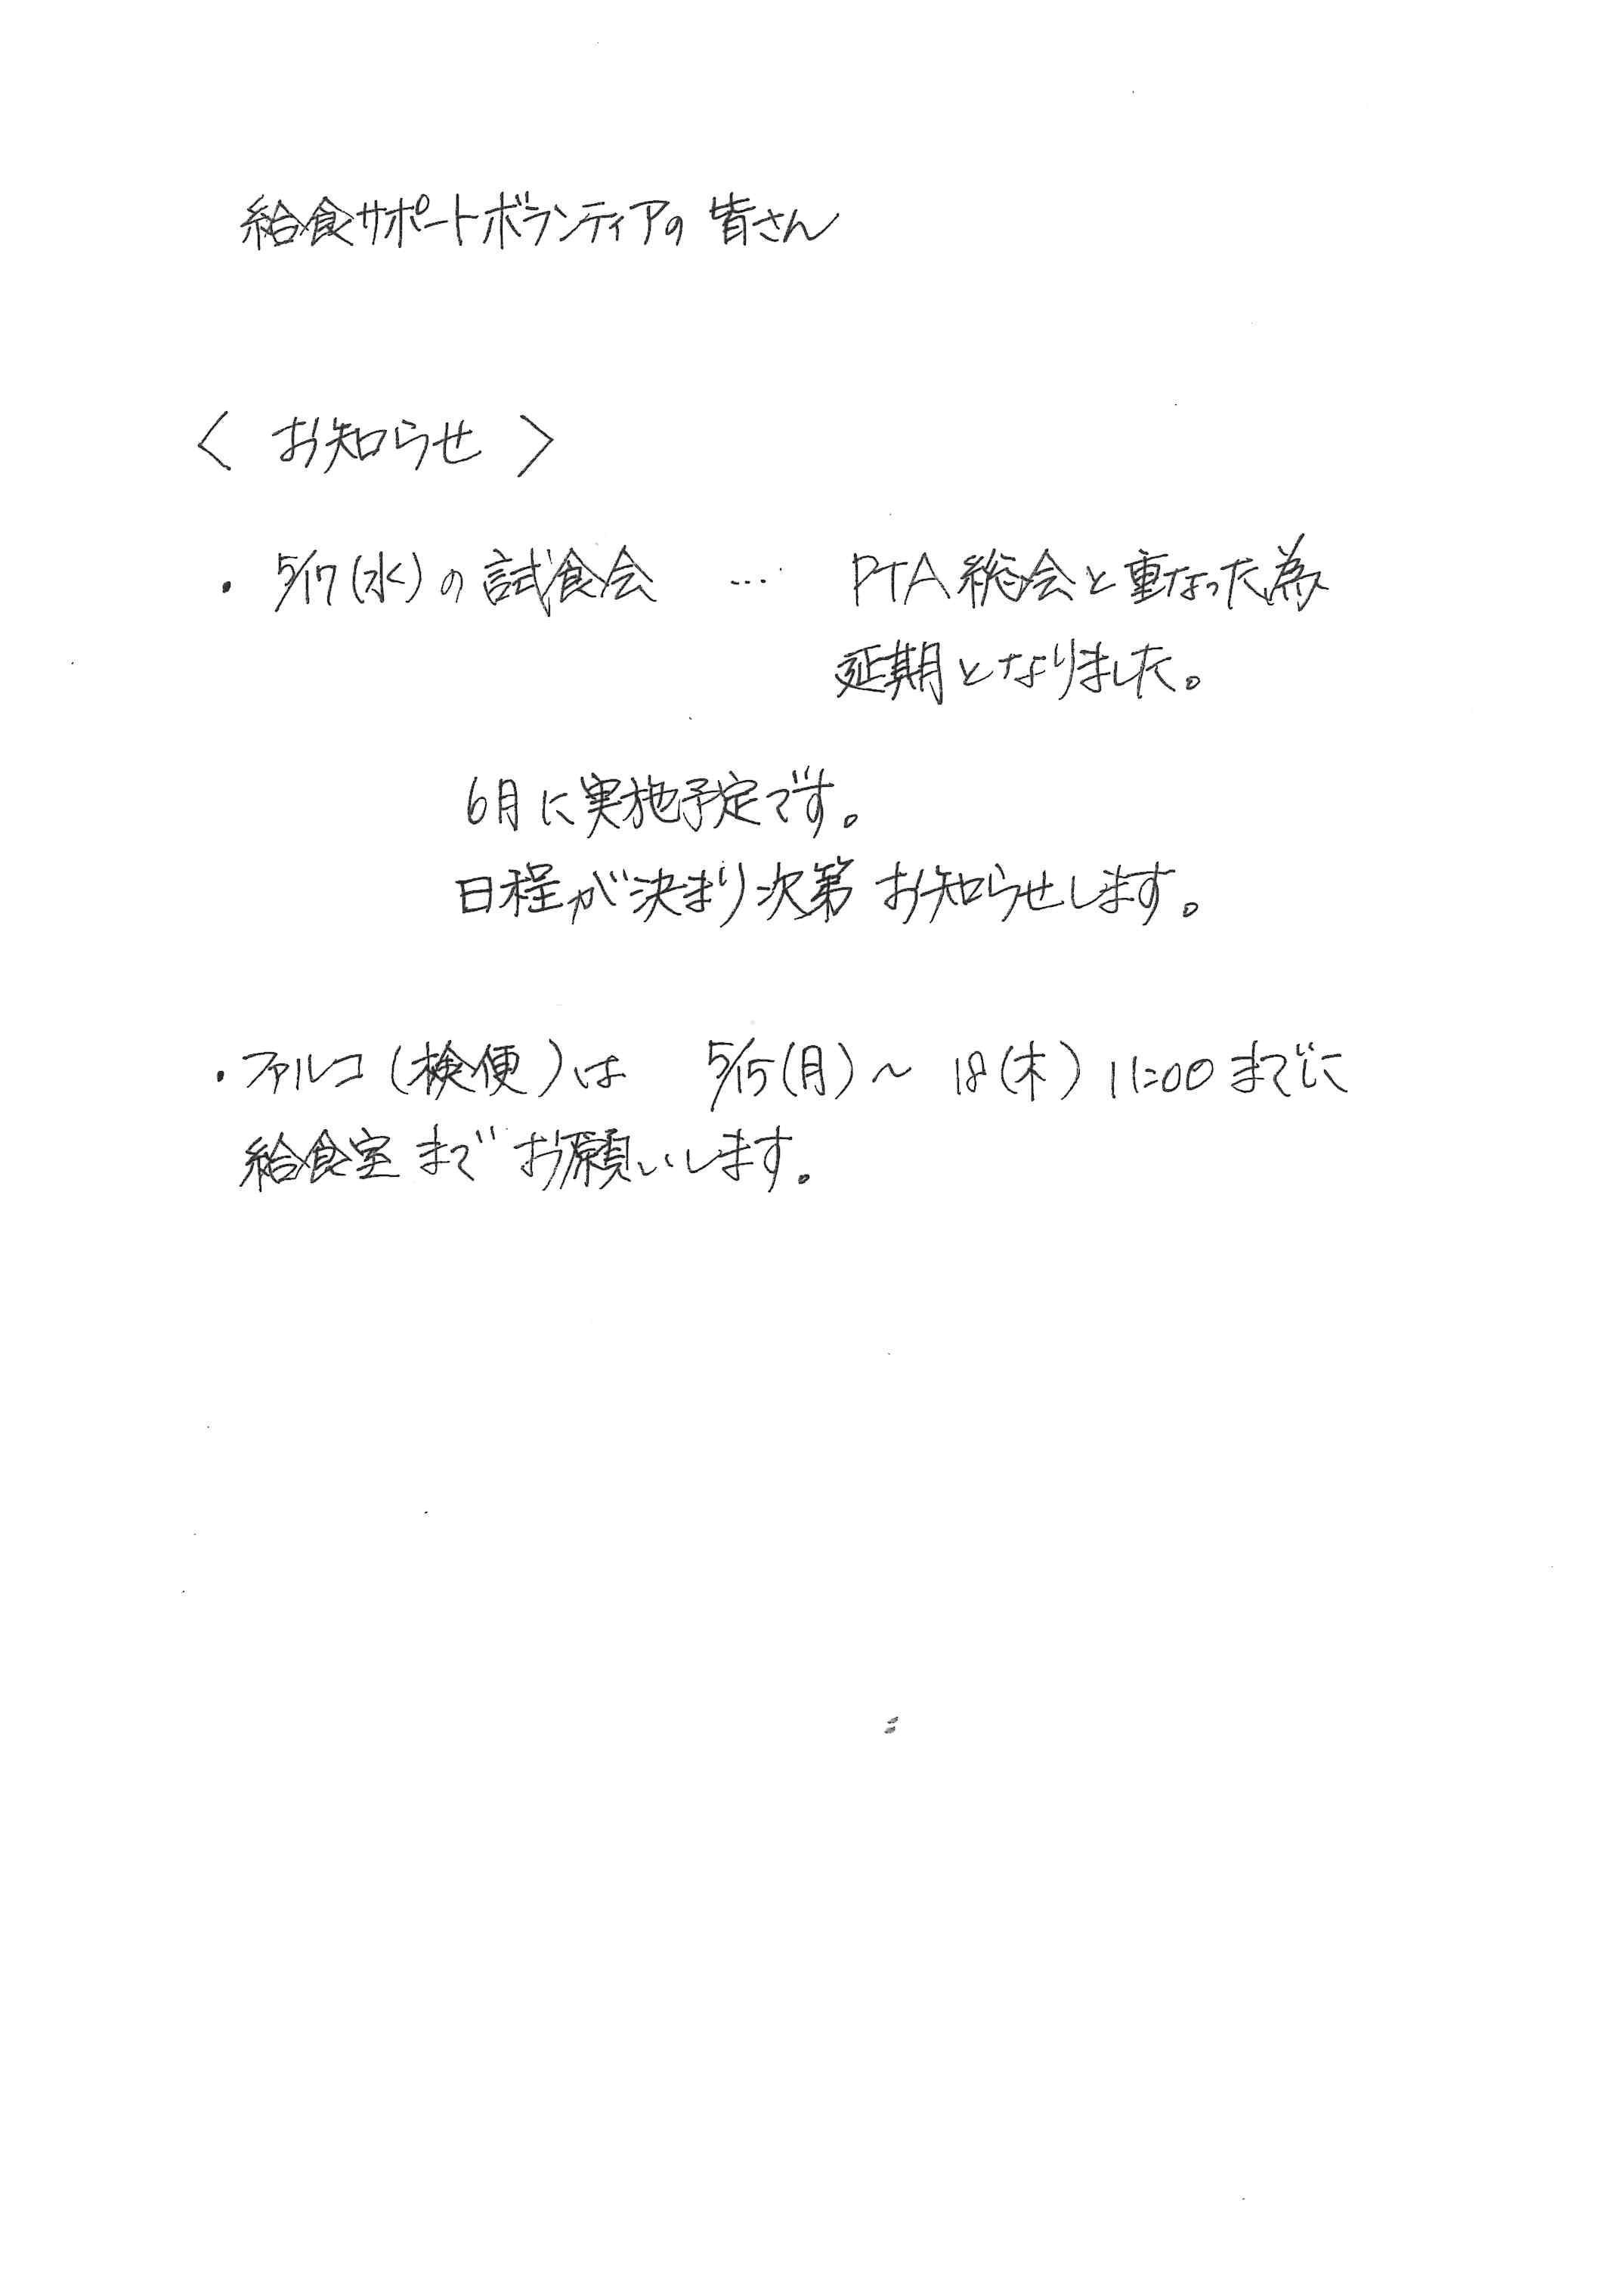 給食サポートボランティアの 皆さん
〈 お知らせ 〉
・ 5/17(水)の試食会 … PTA総会と重なった為
延期となりました。
6月に実施予定です。
日程が決まり次第 お知らせします。
・ファルコ(検便)は 5/15(月)～ 18(木) 11:00までに
給食室まで お願いします。